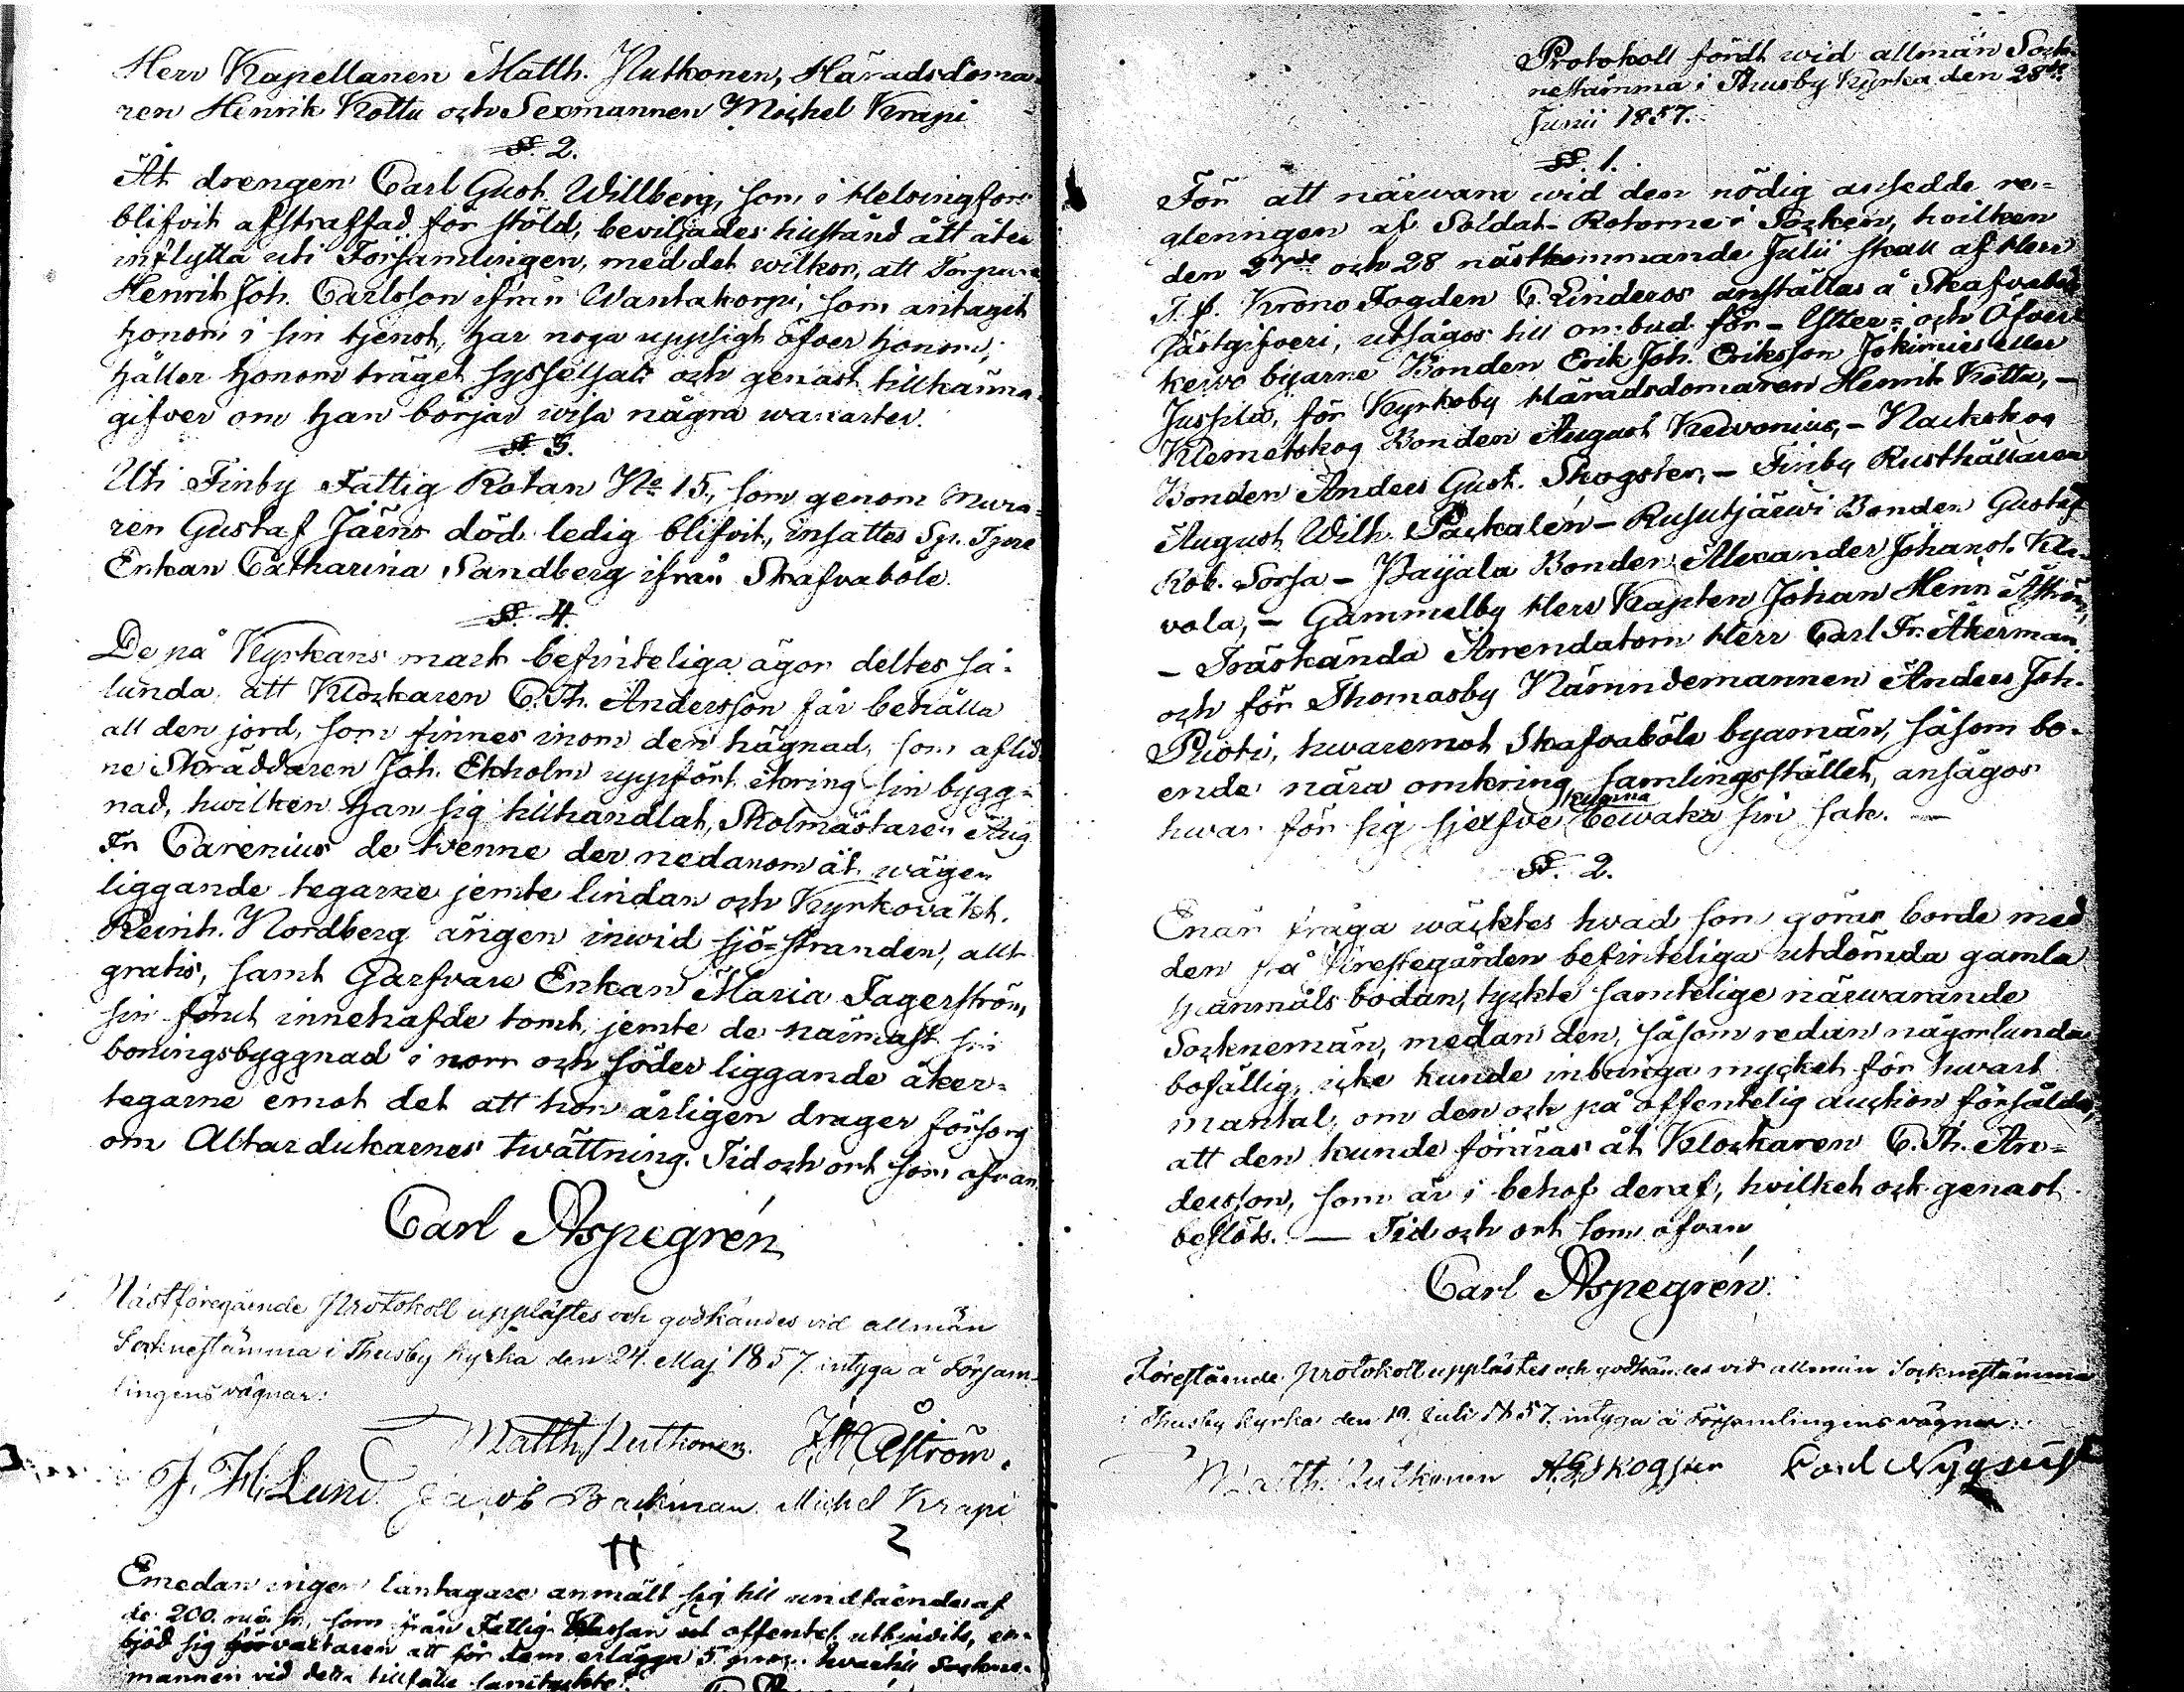 Herr Kapellanen Matth. Putkonen, Häradsdoma-
ren Henrik Kotta och Sexmannen Michel Krapi
§. 2.
Åt drengen Carl Gust. Willberg, som i Helsingfors
blifvit afstraffad för stöld, beviljades tillstånd att åter
inflytta uti Församlingen, med det wilkor, att Torparen
Henrik Joh. Carlsson ifrån Wantakorpi, som antagit
honom i sin tjenst, har noga uppsigt öfver honom,
håller honom träget sysselsatt och genast tillkänna-
gifver om han börjar wisa några wanarter.
§. 3.
Uti Finby Fattig Rotan No 15, som genom Mura-
ren Gustaf Jäens död ledig blifvit, insattes Sp. Tjore
Enkan Catharina Sandberg ifrån Skafvaböle.
§. 4.
De på Kyrkans mark befinteliga ägor deltes så-
lunda, att Klockaren C. Th. Andersson får behålla
all den jord, som finnes inom den hägnad, som aflid-
ne Skräddaren Joh. Ekholm uppfört kring sin bygg-
nad, hwilken han sig tillhandlat, Skolmästaren Aug.
Fr. Carenius de tvenne der nedanom åt vägen
liggande tegarne jemte lindan och Kyrkovakt.
Reinh. Nordberg ängen inwid sjö-stranden, allt
gratis, samt Garfvare Enkan Maria Fagerström
sin förut innehafde tomt, jemte de närmast sin
boningsbyggnad i norr och söder liggande åker-
tegarne emot det att hon årligen drager försorg
om Altardukarnes twättning. Tid och ort som ofvan.
Carl Aspegrén
Nästföregående Protokoll upplästes och godkändes vid allmän
Socknestämma i Thusby kyrka den 24. Maj 1857, intyga å Försam-
lingens vägnar:
Matth. Putkonen. J. H. Åström.
J. H. Lund. Jacob Backman. Michel Krapi
Emedan ingen låntagare anmält sig till undfående af
de 200. som från Fattig Kassan offentel. utbjudits,
bjöd sig att för dem erlägga 5 proc. hvartill Sockne-
männen vid detta tillfälle samtyckte.
Protokoll fördt wid allmän Sock-
nestämma i Thusby Kyrka den 28de
Junii 1857.
§. 1.
För att närwara wid den nödig ansedde re-
gleringen af Soldat-Rotorne i Socken, hvilken
den 27de och 28 nästkommande Julii skall af Herr
T. f. Krono Fogden C. Linderos anställas å Skafvaböle
Gästgifveri, utsågos till ombud för – Ytter- och Öfver-
kervo byarne Bonden Erik Joh. Eriksson Jokimies eller
Jussila, för Kyrkoby Häradsdomaren Henrik Kotta, –
Klemetskog Bonden August Kervonius, – Nackskog
Bonden Anders Gust. Skogster, – Finby Rusthållaren
August Wilh. Packalén – Rusutjärwi Bonden Gustaf
Rob. Sorsa – Paijala Bonden Alexander Johanss. Kle-
vola, – Gammelby Herr Kapten Johan Henr. Åström,
– Träskända Arrendatorn Herr Carl Fr. Åkerman
och för Thomasby Nämndemannen Anders Joh.
Pioti, hwaremot Skafvaböle byamän, såsom bo-
ende nära omkring samlingsstället, ansågos
hwar för sig sjelfve kunna bewaka sin sak. –
§. 2.
Enär fråga wäcktes hvad som göras borde med
den på Prestegården befinteliga utdömda gamla
spanmåls bodan, tyckte samtelige närwarande
Sockneman, medan den, såsom redan någorlunda
bofällig, icke kunde inbringa mycket för hwart
mantal, om den ock på offentelig auction försåldes,
att den kunde föräras åt Klockaren C. Th. An-
dersson, som är i behof deraf, hvilket ock genast
beslöts. — Tid och ort som ofvan
Carl Aspegrén.
Förestående Protokoll upplästes och godkändes vid allmän Socknestämma
i Thusby kyrka den 19. Juli 1857, intyga å Församlingens vägnar:
Matth. Putkonen A. G. Skogster Carl Nyqvist